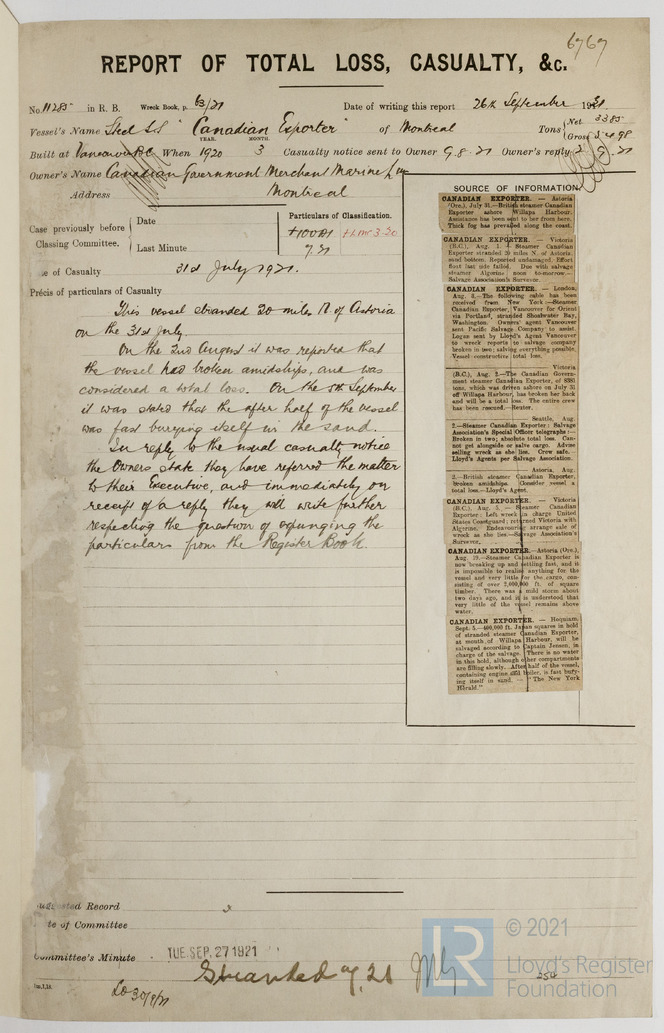 6767
REPORT OF TOTAL LOSS, CASUALTY, &c.
No. 11285 in R. B. Wreck Book, p. 63/21 Date of writing this report 26th September 1921
Vessel's Name Steel S.S "Canadian Exporter" of Montreal Tons Net 3385
YEAR. MONTH. Gross 5498
Built at Vancouver B.C. When 1920 3 Casualty notice sent to Owner 9.8.21 Owner's reply 2.9.21
Owner's Name Canadian Government Merchant Marine
Address Montreal
Case previously before Classing Committee.
Date
Last Minute
Particulars of Classification.
+100A1 +LMC 3-20
7.21
e of Casualty 31st July 1921.
Précis of particulars of Casualty
This vessel stranded 20 miles N of Astoria
on the 31st July.
On the 2nd August it was reported that
the vessel had broken amidships, and was
considered a total loss. On the 5th September
it was stated that the after half of the vessel
was fast burying itself in the sand.
In reply to the usual casualty notice
the Owners state they have referred the matter
to their Executive, and immediately on
receipt of a reply they will write further
respecting the question of expunging the
particulars from the Register Book.
SOURCE OF INFORMATION
CANADIAN EXPORTER. — Astoria
(Ore.), July 31.—British steamer Canadian
Exporter ashore Willapa Harbour.
Assistance has been sent to her from here.
Thick fog has prevailed along the coast.
CANADIAN EXPORTER. — Victoria
(B.C.), Aug. 1.—Steamer Canadian
Exporter stranded 20 miles N. of Astoria,
sand bottom. Reported undamaged. Effort
float last tide failed. Due with salvage
steamer Algerine noon to-morrow.—
Salvage Association's Surveyor.
CANADIAN EXPORTER. — London,
Aug. 3.—The following cable has been
received from New York:—Steamer
Canadian Exporter, Vancouver for Orient
via Portland, stranded Shoalwater Bay,
Washington. Owners' agent Vancouver
sent Pacific Salvage Company to assist.
Logan sent by Lloyd's Agent Vancouver
to wreck reports to salvage company
broken in two; salving everything possible.
Vessel constructive total loss.
Victoria
(B.C.), Aug. 2.—The Canadian Govern-
ment steamer Canadian Exporter, of 8381
tons, which was driven ashore on July 31
off Willapa Harbour, has broken her back
and will be a total loss. The entire crew
has been rescued.—Reuter.
Seattle, Aug.
2.—Steamer Canadian Exporter: Salvage
Association's Special Officer telegraphs:—
Broken in two; absolute total loss. Can-
not get alongside or salve cargo. Advise
selling wreck as she lies. Crew safe.—
Lloyd's Agents per Salvage Association.
Astoria, Aug.
2.—British steamer Canadian Exporter,
broken amidships. Consider vessel a
total loss.—Lloyd's Agent.
CANADIAN EXPORTER. — Victoria
(B.C.), Aug. 5.—Steamer Canadian
Exporter: Left wreck in charge United
States Coastguard; returned Victoria with
Algerine. Endeavouring arrange sale of
wreck as she lies.—Salvage Association's
Surveyor.
CANADIAN EXPORTER.—Astoria (Ore.),
Aug. 19.—Steamer Canadian Exporter is
now breaking up and settling fast, and it
is impossible to realise anything for the
vessel and very little for the cargo, con-
sisting of over 2,000,000 ft. of square
timber. There was a mild storm about
two days ago, and it is understood that
very little of the vessel remains above
water.
CANADIAN EXPORTER. — Hoquiam,
Sept. 5.—400,000 ft. Japan squares in hold
of stranded steamer Canadian Exporter,
at mouth of Willapa Harbour, will be
salvaged according to Captain Jensen, in
charge of the salvage. There is no water
in this hold, although other compartments
are filling slowly. After half of the vessel,
containing engine and boiler, is fast bury-
ing itself in sand. — "The New York
Herald."
ested Record
te of Committee
ommittee's Minute TUE. SEP. 27 1921
Stranded 7,21
254
LO 30/9/21
LR
© 2021
Lloyd's Register
Foundation